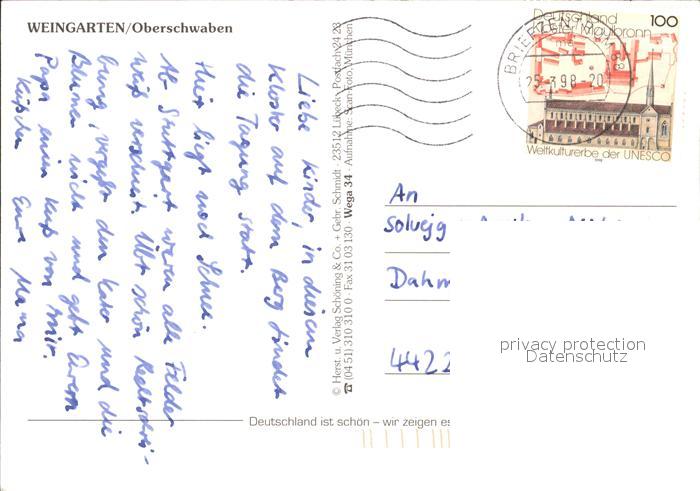 WEINGARTEN/Oberschwaben
Liebe Kinder, in diesem
Kloster auf dem Berg findet
die Tagung statt.
Hier liegt noch Schnee.
Ab Stuttgart waren alle Felder
weiß verschneit. Übt schön Rechtschrei-
bung, vergeßt den Kater und die
Blumen nicht und gebt Eurem
Papa einen Kuß von mir.
Küßchen Eure Mama
© Herst. u. Verlag Schöning & Co. + Gebr. Schmidt · 23512 Lübeck · Postfach 24 23
☎ (04 51) 310 310 0 · Fax 31 03 130 · Wega 34 · Aufnahme: Scan-Foto, München
Deutschland 100
Kloster Maulbronn
BRIETZEN
25.-3.98.-20
Weltkulturerbe der UNESCO
An
Solvejg
Dahm
4422
privacy protection
Datenschutz
Deutschland ist schön – wir zeigen es